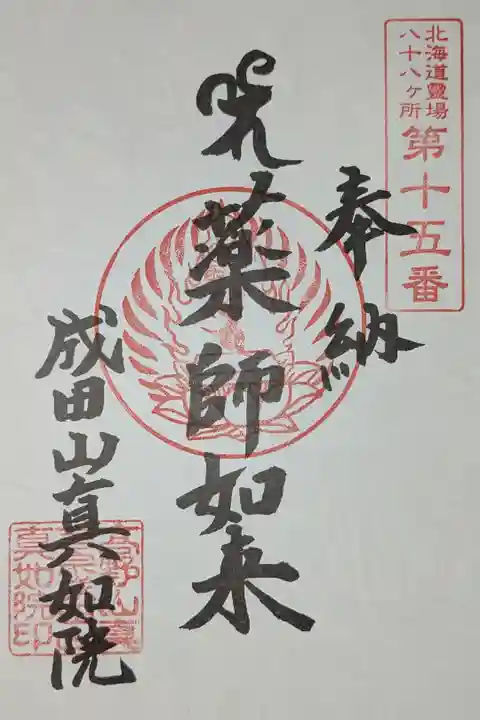 北海道靈場
八十八ヶ所
第十五番
奉納
薬師如来
成田山真如院